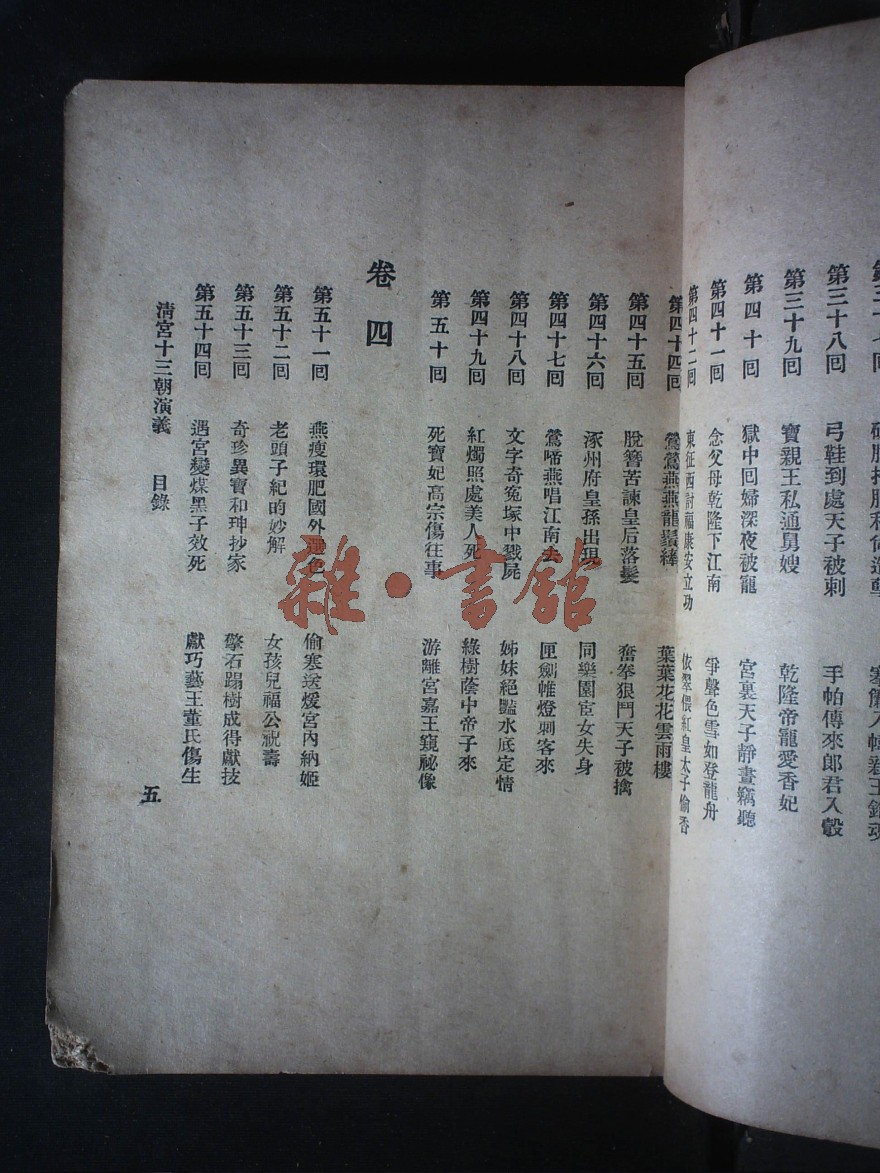 第三十八回 弓鞋到處天子被刺 手帕傳來郎君入彀
第三十九回 寶親王私通舅嫂 乾隆帝寵愛香妃
第四十回 獄中回婦深夜被寵 宮裏天子靜晝竊聽
第四十一回 念父母乾隆下江南 爭聲色雪如登龍舟
第四十二回 東征西討福康安立功 依翠偎紅皇太子偷香
第四十四回 鶯鶯燕燕龍鬚縴 葉葉花花雲雨樓
第四十五回 脫簪苦諫皇后落髮 奮拳狠鬥天子被擒
第四十六回 涿州府皇孫出現 同樂園宦女失身
第四十七回 鶯啼燕唱江南去 匣劍帷燈刺客來
第四十八回 文字奇冤塚中戮屍 姊妹絕豔水底定情
第四十九回 紅燭照處美人死 綠樹蔭中帝子來
第五十回 死寶妃高宗傷往事 游離宮嘉王窺祕像
卷四
第五十一回 燕瘦環肥國外選色 偷寒送煖宮內納姬
第五十二回 老頭子紀昀妙解 女孩兒福公祝壽
第五十三回 奇珍異寶和珅抄家 擎石蹋樹成得獻技
第五十四回 遇宮變煤黑子效死 獻巧藝王董氏傷生
清宮十三朝演義 目錄
五
雜·書館